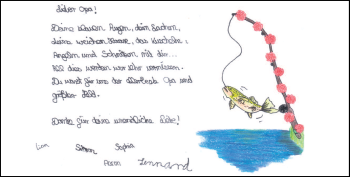 Lieber Opa!
Deine blauen Augen, dein Lachen,
deine weichen Haare, das Kuscheln,
Angeln und Schnitzen mit dir...
All dies werden wir sehr vermissen.
Du warst für uns der liebste Opa und
größter Held.
Danke für deine unendliche Liebe!
Sophia
Lennard